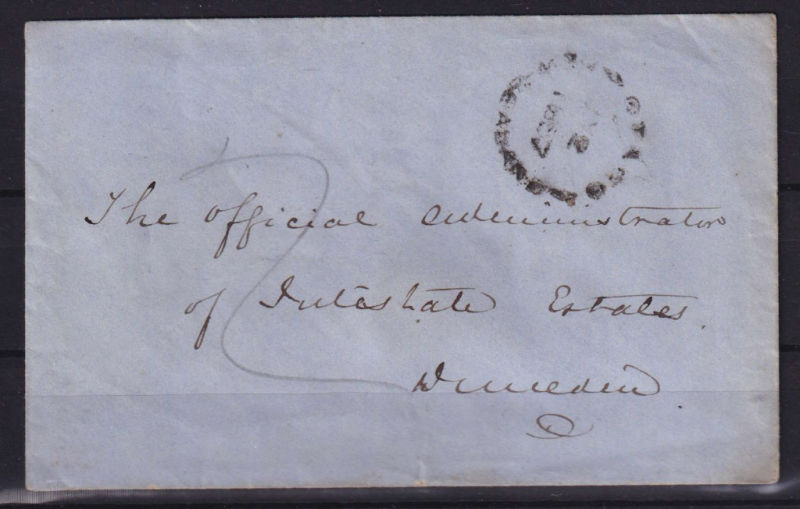 The Official Administrator
of Intestate Estates.
Dunedin